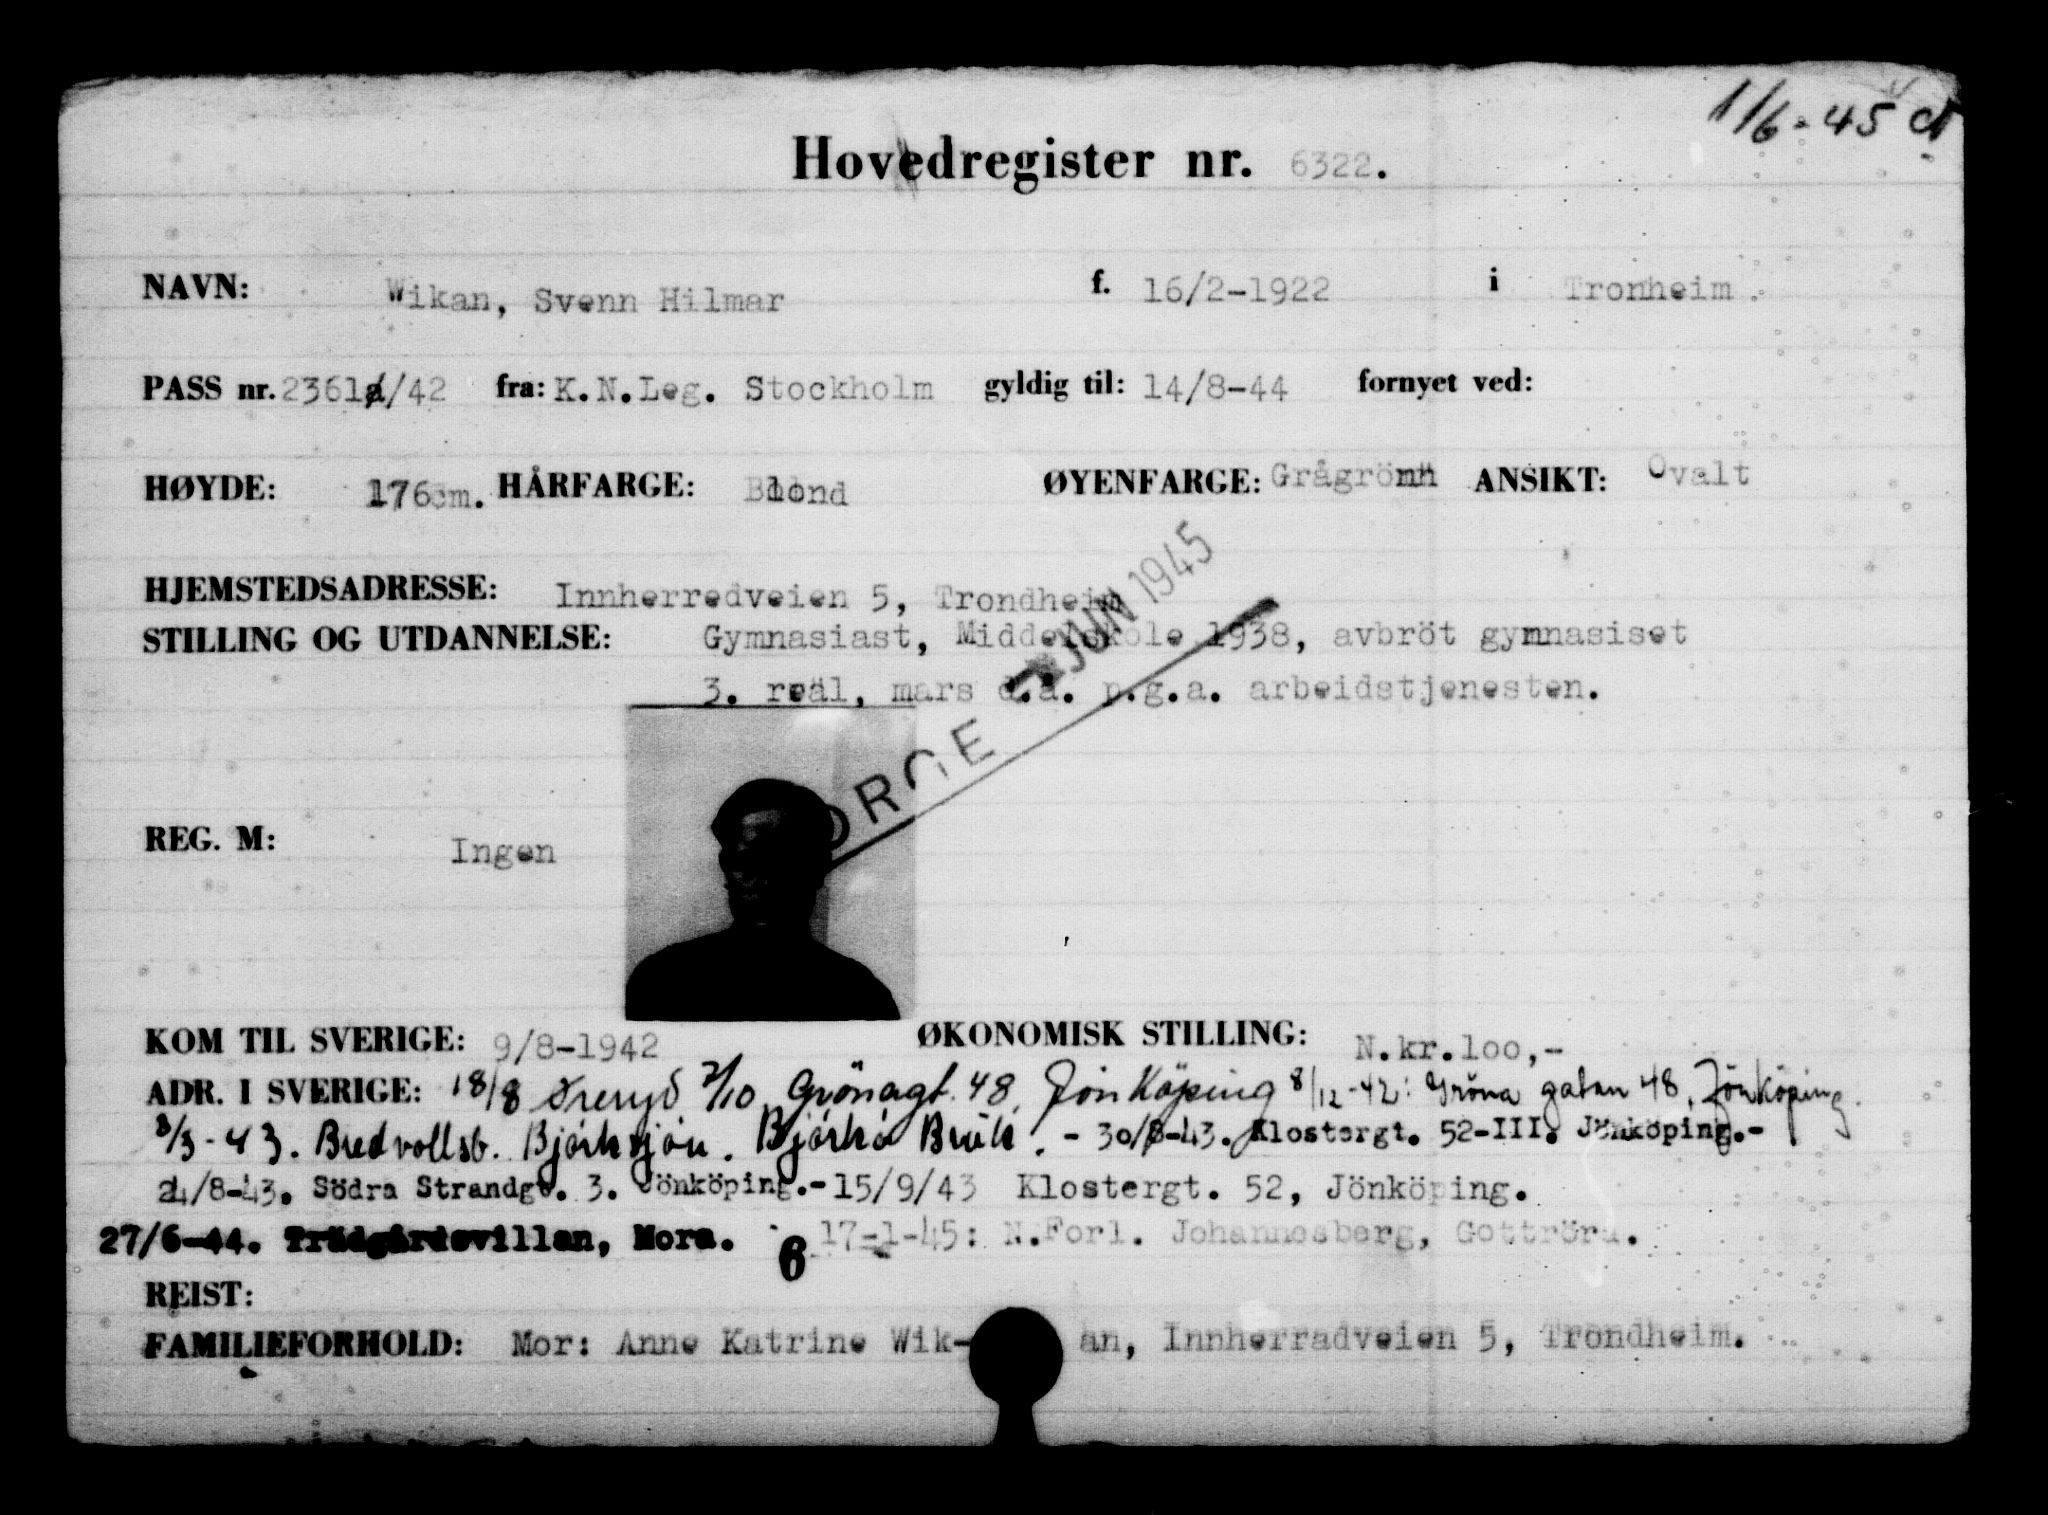 1/6-45
Hovedregister nr. 6322.
NAVN: Wikan, Svenn Hilmar f. 16/2-1922 i Tronheim.
PASS nr. 2361a/42 fra: K.N.Leg. Stockholm gyldig til: 14/8-44 fornyet ved:
HØYDE: 176cm. HÅRFARGE: Blond ØYENFARGE: Grågrönn ANSIKT: Ovalt
JUN 1945
HJEMSTEDSADRESSE: Innherredveien 5, Trondheim
STILLING OG UTDANNELSE: Gymnasiast, Middelskole 1938, avbröt gymnasiset
3. reäl, mars d.å. p.g.a. arbeidstjenesten.
ORGE
REG. M: Ingen
KOM TIL SVERIGE: 9/8-1942 ØKONOMISK STILLING: N.kr.100,-
ADR. I SVERIGE: 18/8 Öreryd 7/10 Grönagt. 48, Jönköping 8/12-42: Gröna gatan 48, Jönköping.
3/3-43. Bredvollsb. Björksjön. Björkå Bruk. - 30/6-43. Klostergt. 52-III. Jönköping.-
24/8-43. Södra Strandgt. 3. Jönköping.- 15/9/43 Klostergt. 52, Jönköping.
27/6-44. Trädgårdsvillan, Mora. 6 17-1-45: N.Forl. Johannesberg, Gottröra.
REIST:
FAMILIEFORHOLD: Mor: Anne Katrine Wik- an, Innherradveien 5, Trondheim.